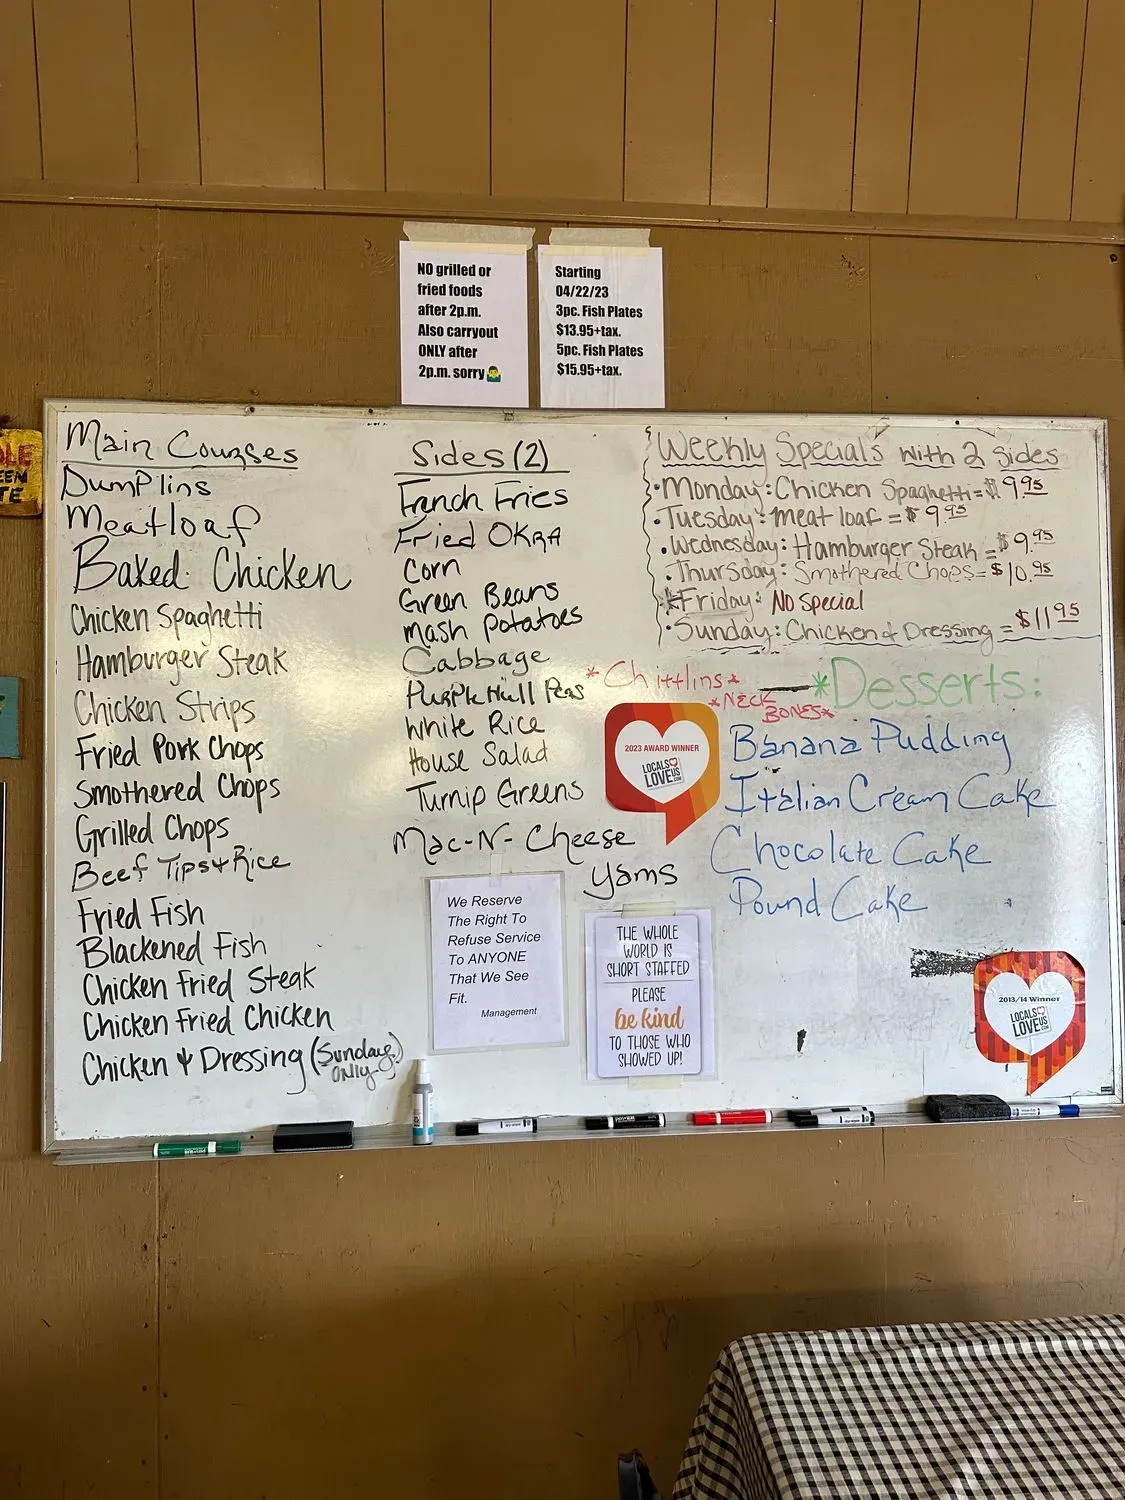 NO grilled or
fried foods
after 2p.m.
Also carryout
ONLY after
2p.m. sorry
Starting
04/22/23
3pc. Fish Plates
$13.95+tax.
5pc. Fish Plates
$15.95+tax.
Main Courses
Dumplins
Meatloaf
Baked Chicken
Chicken Spaghetti
Hamburger Steak
Chicken Strips
Fried Pork Chops
Smothered Chops
Grilled Chops
Beef Tips + Rice
Fried Fish
Blackened Fish
Chicken Fried Steak
Chicken Fried Chicken
Chicken & Dressing (Sunday
ONLY)
Sides (2)
French Fries
Fried OKRA
Corn
Green Beans
Mash Potatoes
Cabbage
Purple Hull Peas
White Rice
House Salad
Turnip Greens
Mac-N-Cheese
Yams
Weekly Specials with 2 Sides
• Monday: Chicken Spaghetti = $9.95
• Tuesday: Meat loaf = $9.95
• Wednesday: Hamburger Steak = $9.95
• Thursday: Smothered Chops = $10.95
* Friday: No Special
• Sunday: Chicken & Dressing = $11.95
*Chittlins*
*NECK
BONES*
*Desserts:
Banana Pudding
Italian Cream Cake
Chocolate Cake
Pound Cake
2023 AWARD WINNER
LOCALS
LOVE US
.COM
We Reserve
The Right To
Refuse Service
To ANYONE
That We See
Fit.
Management
THE WHOLE
WORLD IS
SHORT STAFFED
PLEASE
be kind
TO THOSE WHO
SHOWED UP!
2013/14 Winner
LOCALS
LOVE US
.COM